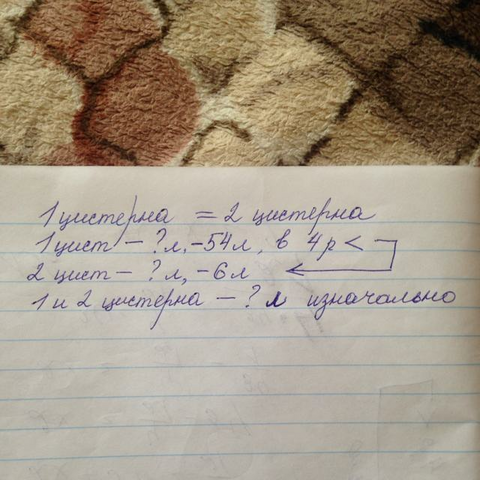 1 цистерна = 2 цистерна
1 цист – ? л, -54л, в 4р <
2 цист – ? л, -6л
1 и 2 цистерна – ? л изначально